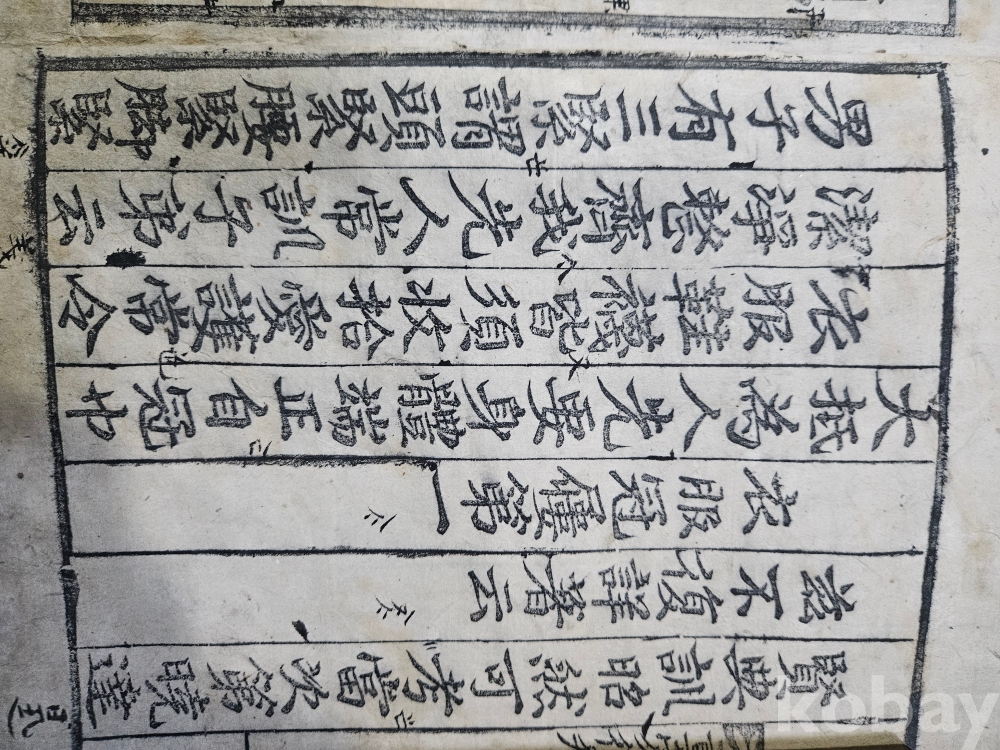 賢典訓昭然可考當次第曉達
玆不復詳著云
衣服冠屨第一
大抵為人先要身體端正自冠巾
衣服鞋襪皆須收拾愛護常令
潔淨整齊我先人常訓子弟云
男子有三緊謂頭緊腰緊脚緊
kobay